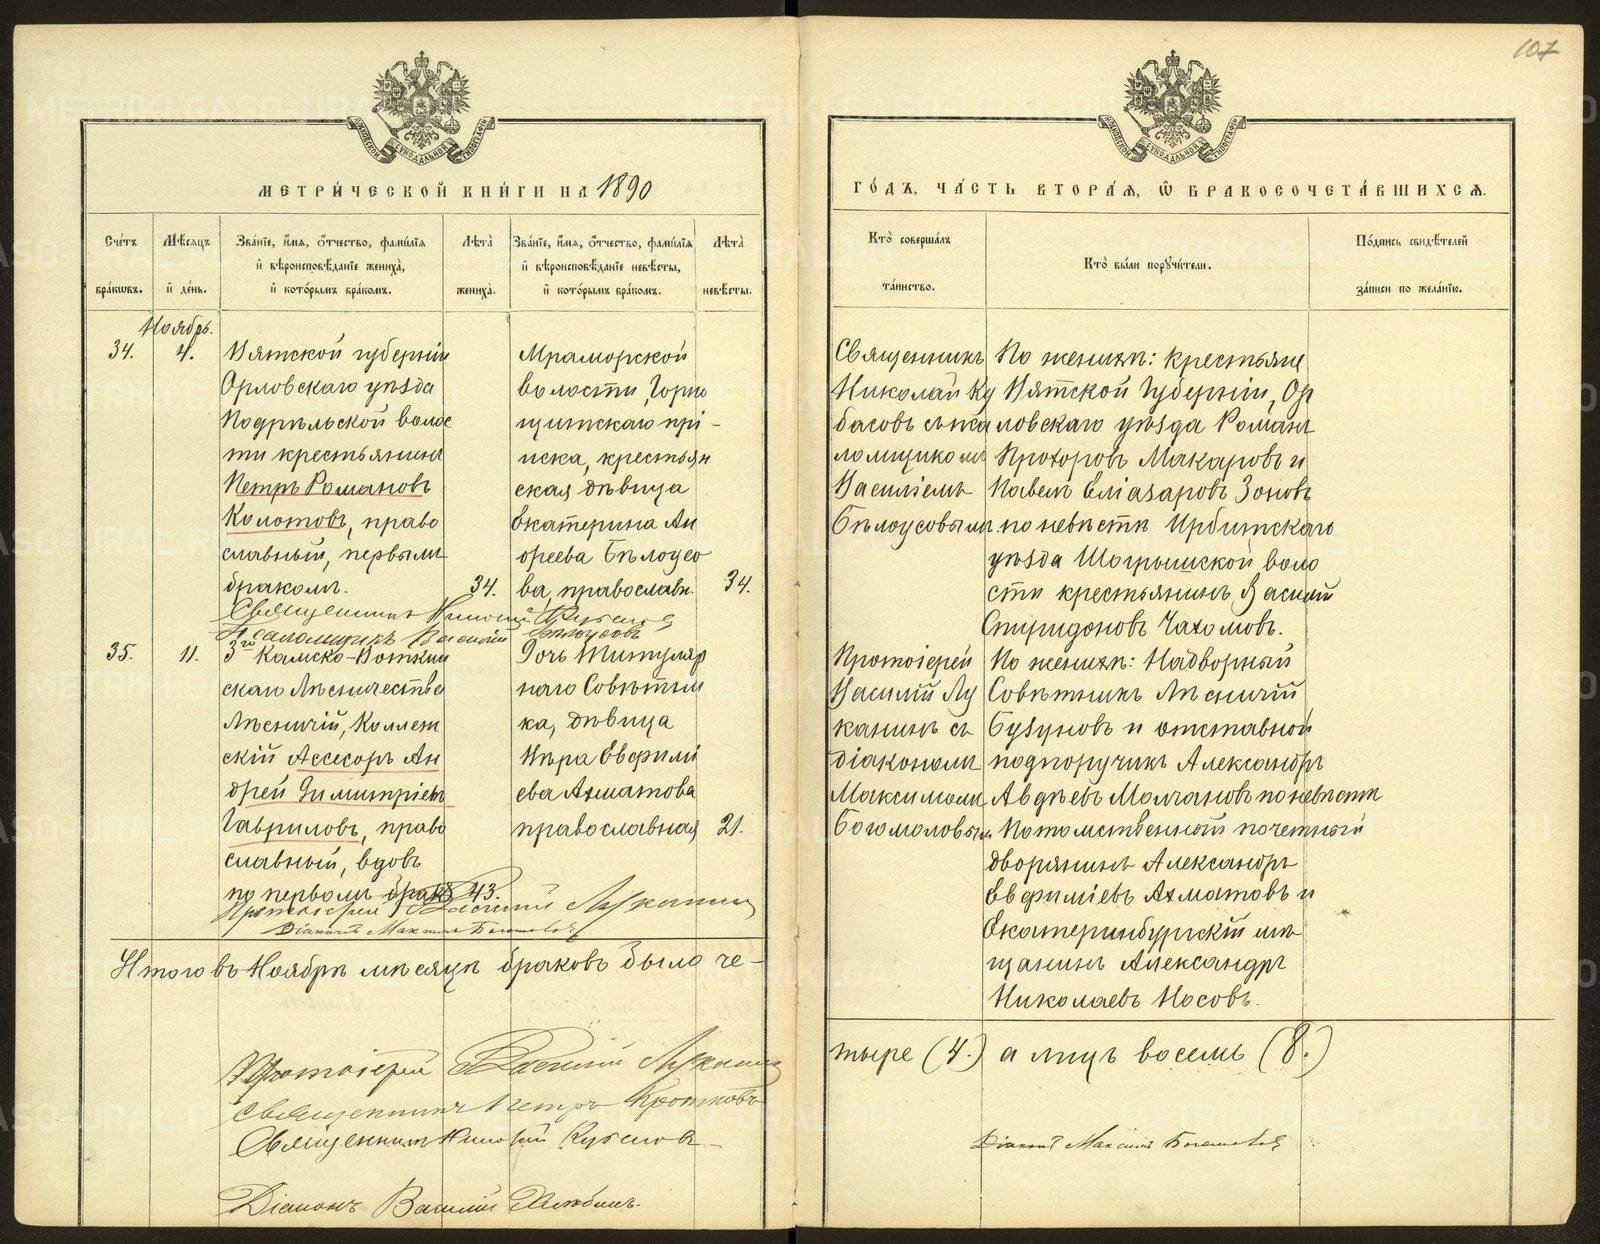 107
МЕТРИ́ЧЕСКОЙ КНИ́ГИ НА 1890
Сче́тъ бра́кѡвъ.
Мѣ́сѧцъ и де́нь.
Зва́нїе, и́мѧ, ѻ́тчество, фами́лїѧ
и вѣроисповѣ́данїе жениха̀,
и кото́рымъ бра́комъ.
Лѣта̀ жениха̀.
Зва́нїе, и́мѧ, ѻ́тчество, фами́лїѧ
и вѣроисповѣ́данїе невѣ́сты,
и кото́рымъ бра́комъ.
Лѣта̀ невѣ́сты.
Ноябрь.
34.
4.
Вятской губерніи
Орловскаго уѣзда
Подрѣльской волос
ти крестьянинъ
Петръ Романовъ
Колотовъ, право
славный, первымъ
бракомъ.
34.
Мраморской
волости, Горно
щитскаго прі-
иска, крестьян
ская дѣвица
Екатерина Ан
дреева Бѣлоусо
ва, православн.
34.
Священникъ Николай
Псаломщикъ Василій Бѣлоусовъ
35.
11.
3го Камско-Воткин
скаго Лѣсничества
Лѣсничій, Коллеж
скій Ассесоръ Ан
дрей Димитріевъ
Гавриловъ, право
славный, вдовъ
по первомъ бракѣ
43.
Дочь Титуляр
наго Совѣтни
ка, дѣвица
Вѣра Евфимі
ева Ахматова
православная
21.
Протоіерей Василій Луканинъ
Діаконъ Максимъ Богомоловъ
Итого въ Ноябрѣ мѣсяцѣ браковъ было че-
Протоіерей Василій Луканинъ
Священникъ Петръ
Священникъ Николай
Діаконъ Василій
ГО́ДЪ, ЧА́СТЬ ВТОРА́Ѧ, Ѽ БРАКОСОЧЕТА́ВШИХСѦ.
Кто̀ соверша́лъ
та́инство.
Кто̀ бы́ли порꙋчи́тели.
По́дпись свидѣ́телей
за́писи по жела́нїю.
Священникъ
Николай Ку
басовъ съ пса
ломщикомъ
Василіемъ
Бѣлоусовымъ.
По женихѣ: крестьяне
Вятской Губерніи, Ор
ловскаго уѣзда Романъ
Прохоровъ Макаровъ и
Павелъ Еліазаровъ Зоновъ
по невѣстѣ Ирбитскаго
уѣзда Шогришской воло
сти крестьянинъ Василій
Спиридоновъ Чахомовъ.
Протоіерей
Василій Лу
канинъ съ
діакономъ
Максимомъ
Богомоловымъ
По женихѣ: Надворный
Совѣтникъ Лѣсничій
Бузуновъ и отставной
подпоручикъ Александръ
Авдѣевъ Молчановъ по невѣстѣ
Потомственный почетный
дворянинъ Александръ
Евфиміевъ Ахматовъ и
Екатеринбургскій мѣ
щанинъ Александръ
Николаевъ Носовъ.
тыре (4.) а лицъ восемь (8.)
Діаконъ Максимъ Богомоловъ